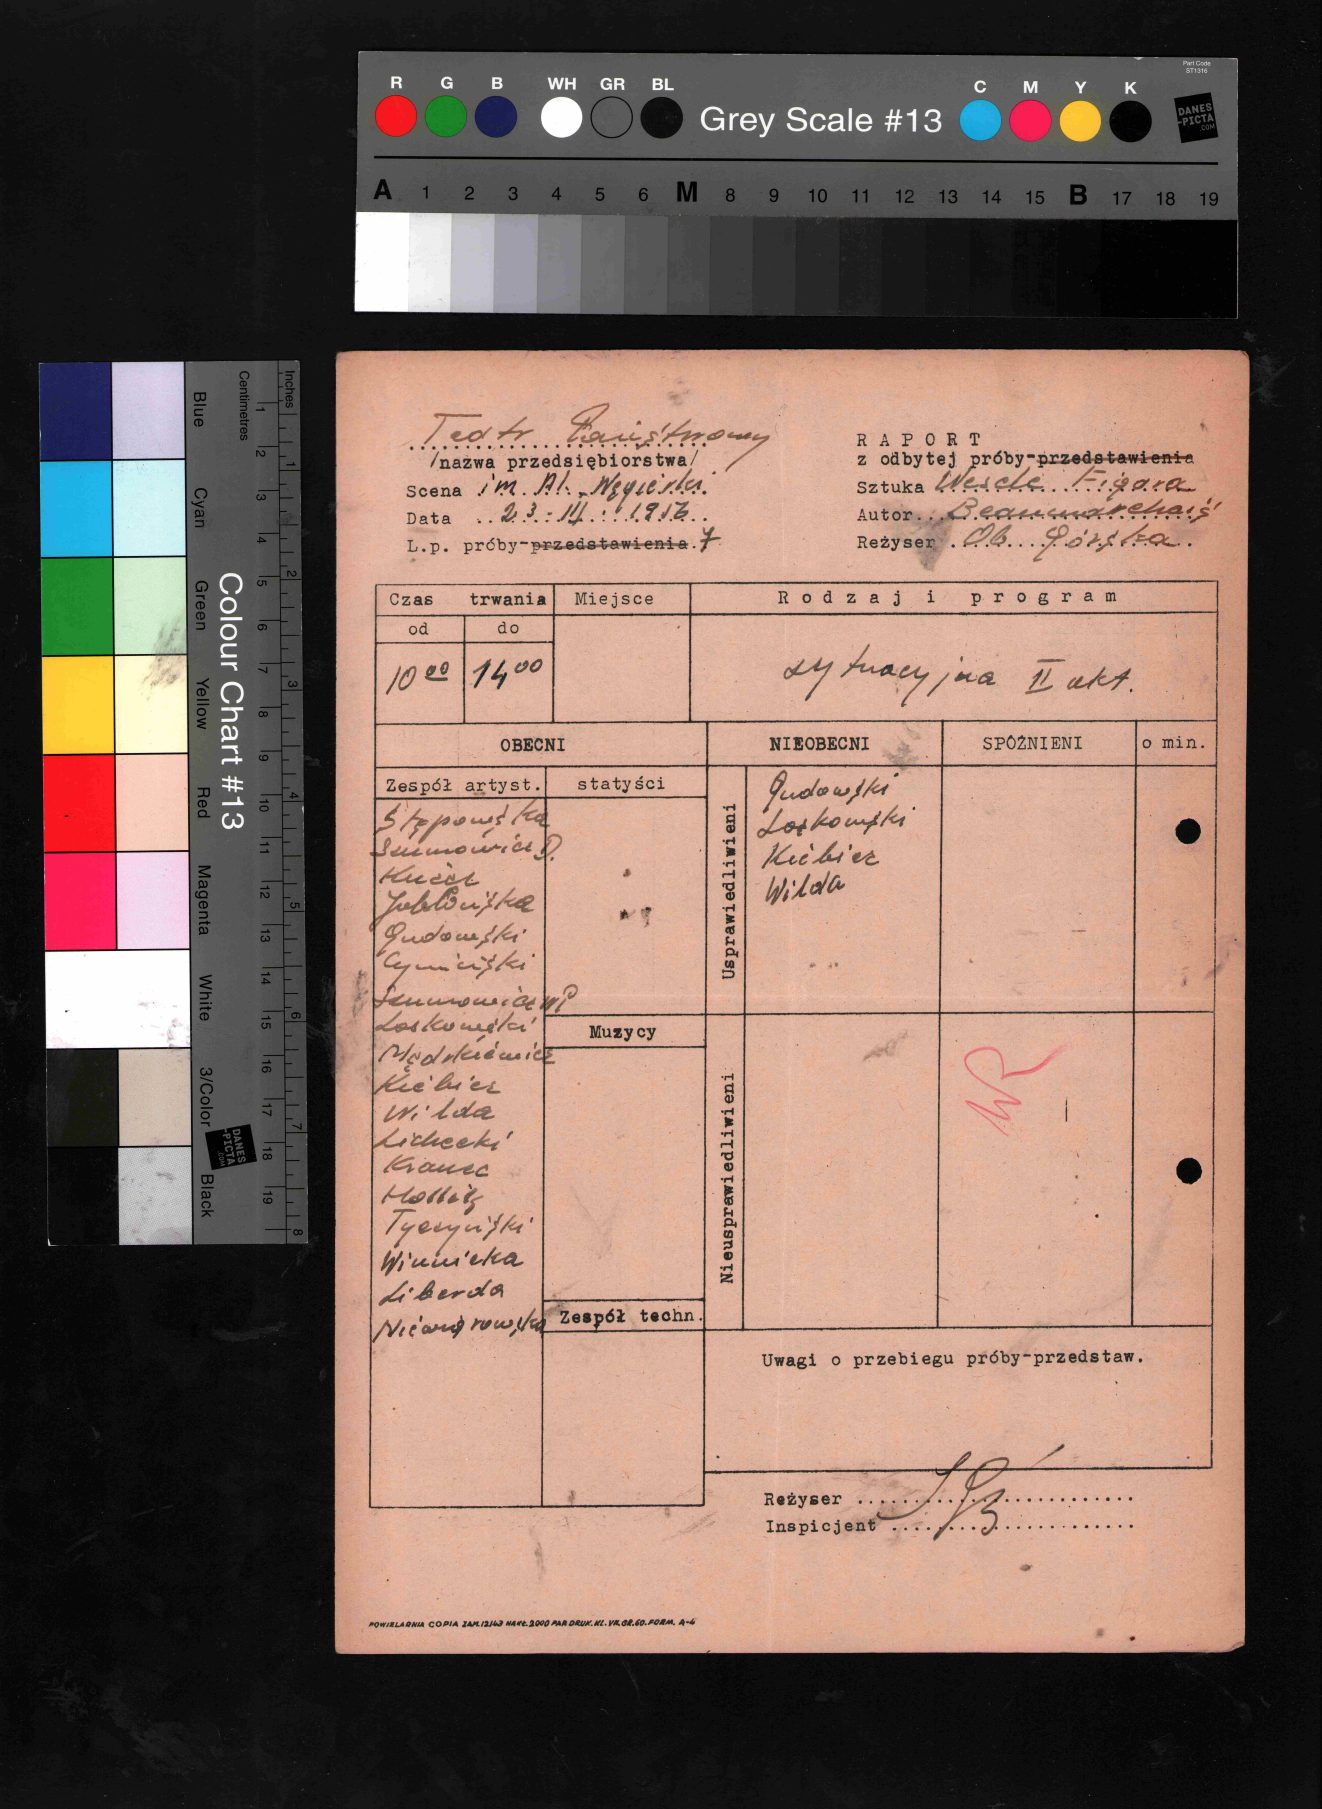 Part Code
ST1316
R G B WH GR BL Grey Scale #13 C M Y K
DANES
-PICTA
.COM
A 1 2 3 4 5 6 M 8 9 10 11 12 13 14 15 B 17 18 19
Colour Chart #13
Blue Cyan Green Yellow Red Magenta White 3/Color Black
Centimetres
1 2 3 4 5 6 7 8 9 10 11 12 13 14 15 16 17 18 19
Inches
1 2 3 4 5 6 7 8
DANES
-PICTA
.COM
Teatr Państwowy
/nazwa przedsiębiorstwa/
Scena im. Al. Węgierki
Data 23 - III - 19
L.p. próby-przedstawienia. 7
RAPORT
z odbytej próby-przedstawienia
Sztuka Wesele Figara
Autor Beaumarchais
Reżyser Ob. Górska
Czas trwania
Miejsce
Rodzaj i program
od do
10 00 14 00
sytuacyjna II akt.
OBECNI
NIEOBECNI
SPÓŹNIENI
o min.
Zespół artyst.
statyści
Stępowska
Szumowicz D.
Jabłońska
Gudowski
Cymiński
Szumowicz
Loskowski
Kiebicz
Wilda
Lichecki
Krauze
Tyczyński
Winnicka
Liberda
Muzycy
Zespół techn.
Usprawiedliwieni
Gudowski
Loskowski
Kiebicz
Wilda
Nieusprawiedliwieni
Uwagi o przebiegu próby-przedstaw.
Reżyser
Inspicjent
POWIELARNIA COPIA ZAM.12/43 NAKŁ.2000 PAP.DRUK.KL.VII.GR.60.FORM. A-4